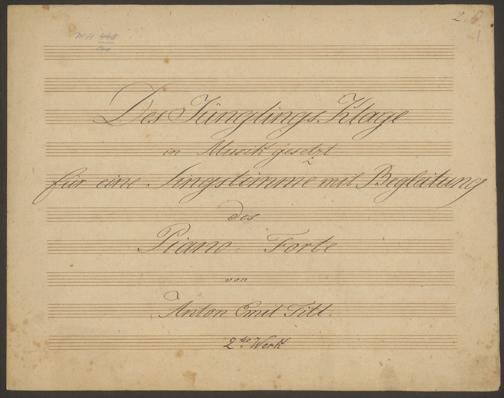 Des Jünglings Klage
in Musik gesetzt
für eine Singstimme mit Begleitung
des
Piano-Forte
von
Anton Emil Titl
2tes Werk